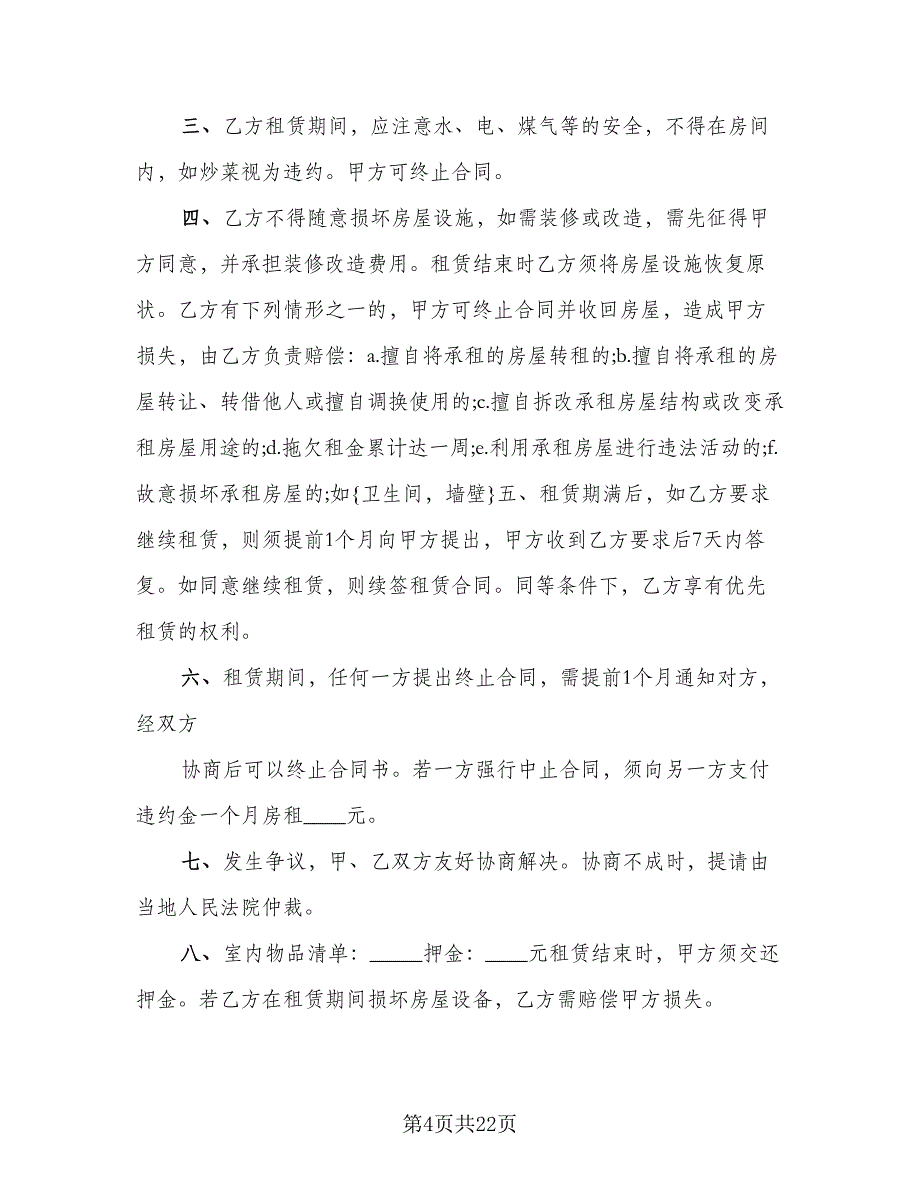 三、乙方租赁期间，应注意水、电、煤气等的安全，不得在房间
内，如炒菜视为违约。甲方可终止合同。
四、乙方不得随意损坏房屋设施，如需装修或改造，需先征得甲
方同意，并承担装修改造费用。租赁结束时乙方须将房屋设施恢复原
状。乙方有下列情形之一的，甲方可终止合同并收回房屋，造成甲方
损失，由乙方负责赔偿：a.擅自将承租的房屋转租的;b.擅自将承租的房
屋转让、转借他人或擅自调换使用的;c.擅自拆改承租房屋结构或改变承
租房屋用途的;d.拖欠租金累计达一周;e.利用承租房屋进行违法活动的;f.
故意损坏承租房屋的;如{卫生间，墙壁}五、租赁期满后，如乙方要求
继续租赁，则须提前1个月向甲方提出，甲方收到乙方要求后7天内答
复。如同意继续租赁，则续签租赁合同。同等条件下，乙方享有优先
租赁的权利。
六、租赁期间，任何一方提出终止合同，需提前1个月通知对方，
经双方
协商后可以终止合同书。若一方强行中止合同，须向另一方支付
违约金一个月房租____元。
七、发生争议，甲、乙双方友好协商解决。协商不成时，提请由
当地人民法院仲裁。
八、室内物品清单：_____押金：____元租赁结束时，甲方须交还
押金。若乙方在租赁期间损坏房屋设备，乙方需赔偿甲方损失。
第4页共22页